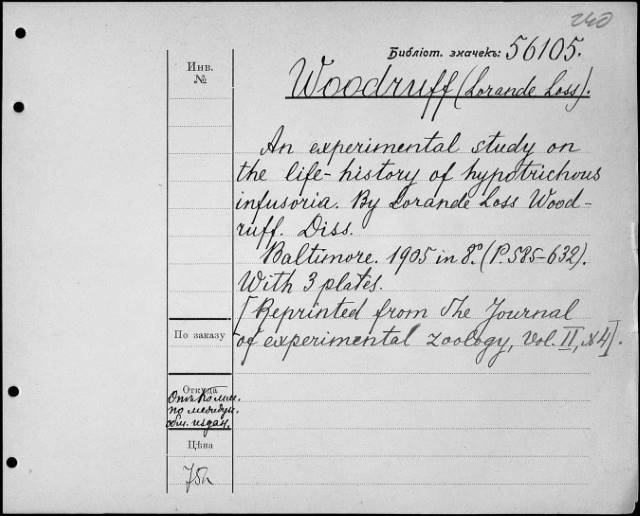 240
Библіот. значекъ: 56105.
Инв.
№
Woodruff (Lorande Loss).
An experimental study on
the life-history of hypotrichous
infusoria. By Lorande Loss Wood-
ruff. Diss.
Baltimore. 1905 in 8º. (P. 585-632).
With 3 plates.
[Reprinted from The Journal
of experimental zoology, Vol. II, №4].
По заказу
Откуда
Отъ Комис.
по междун.
обм. издан.
Цѣна